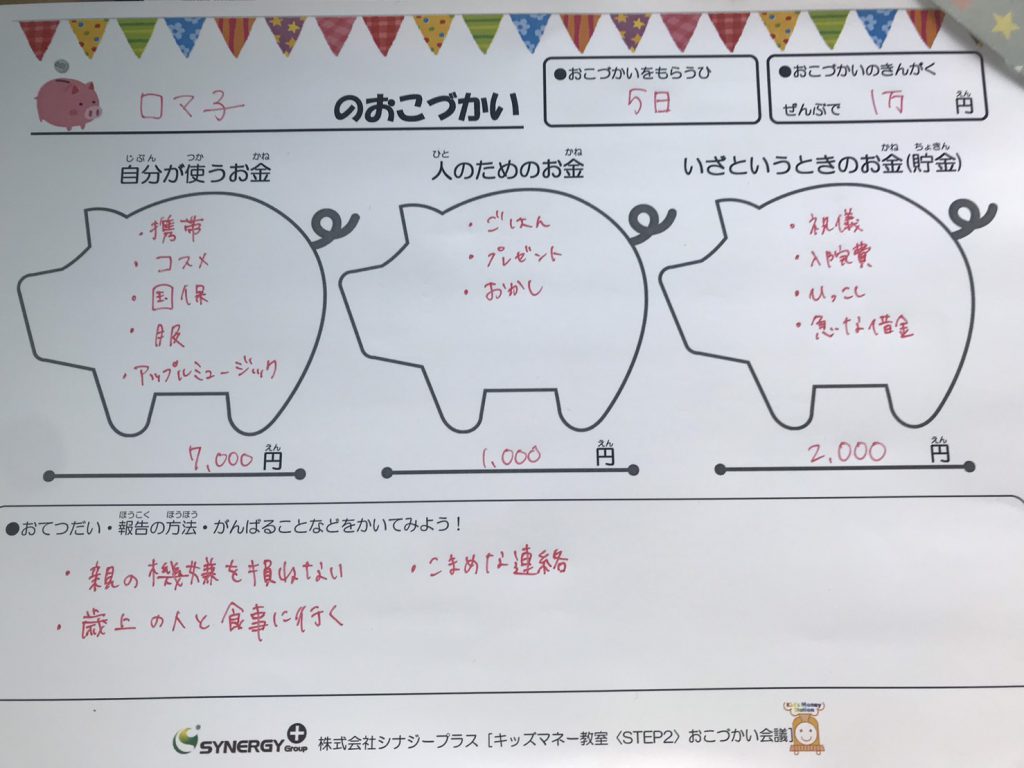 ●おこづかいをもらうひ
5日
●おこづかいのきんがく
ぜんぶで 1万 円
えん
ロマ子 のおこづかい
じぶん つか かね
自分が使うお金
ひと かね
人のためのお金
かね ちょきん
いざというときのお金(貯金)
・携帯
・コスメ
・国保
・服
・アップルミュージック
・ごはん
・プレゼント
・おかし
・祝儀
・入院費
・ひっこし
・急な借金
7,000 円
えん
1,000 円
えん
2,000 円
えん
ほうこく ほうほう
●おてつだい・報告の方法・がんばることなどをかいてみよう!
・親の機嫌を損ねない
・こまめな連絡
・歳上の人と食事に行く
SYNERGY+ Group 株式会社シナジープラス [キッズマネー教室〈STEP2〉おこづかい会議]
Kid's Money Station